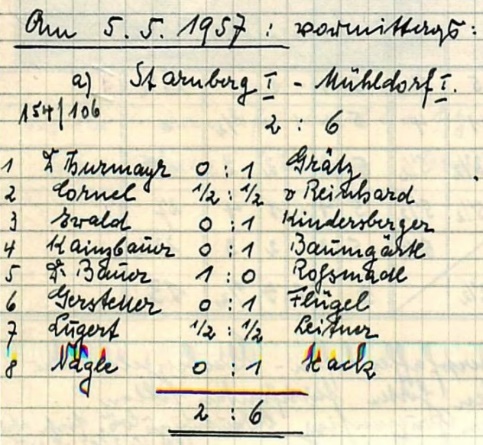 Am 5.5.1957: vormittags:
a) Starnberg I - Mühldorf I.
154/106
2 : 6
1 Dr Thurmayr 0 : 1 Grätz
2 Cornel 1/2 : 1/2 v Reinhard
3 Ewald 0 : 1 Kindersberger
4 Kainzbauer 0 : 1 Baumgärtl
5 Dr. Bauer 1 : 0 Roßmadl
6 Gerstetter 0 : 1 Flügel
7 Lugert 1/2 : 1/2 Leitner
8 Nagle 0 : 1 Hack
2 : 6